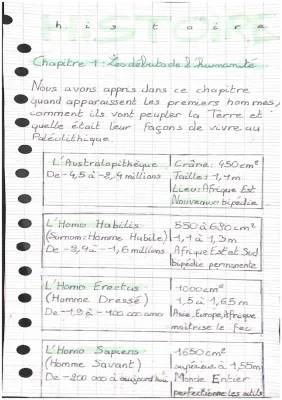 histoire
Chapitre 1 : Les débuts de l'humanité
Nous avons appris dans ce chapitre
quand apparaissent les premiers hommes,
comment ils vont peupler la Terre et
quelle était leur façons de vivre au
Paléolithique.
L'Australopithèque
De -4,5 à -2,4 millions
Crâne: 450cm³
Taille: 1,1m
Lieu: Afrique Est
Nouveau: bipédie
L'Homo Habilis
(Surnom: Homme Habile)
De -2,4 à -1,6 millions
550 à 680cm³
1,1 à 1,3m
Afrique Est et Sud
bipédie permanente
L'Homo Erectus
(Homme Dressé)
De -1,9 à -100 000 ans
1000cm³
1,5 à 1,65m
Asie, Europe, Afrique
maîtrise le feu
L'Homo Sapiens
(Homme Savant)
De -200 000 à aujourd'hui
1650cm³
supérieur à 1,55m
Monde Entier
perfectionne les outils